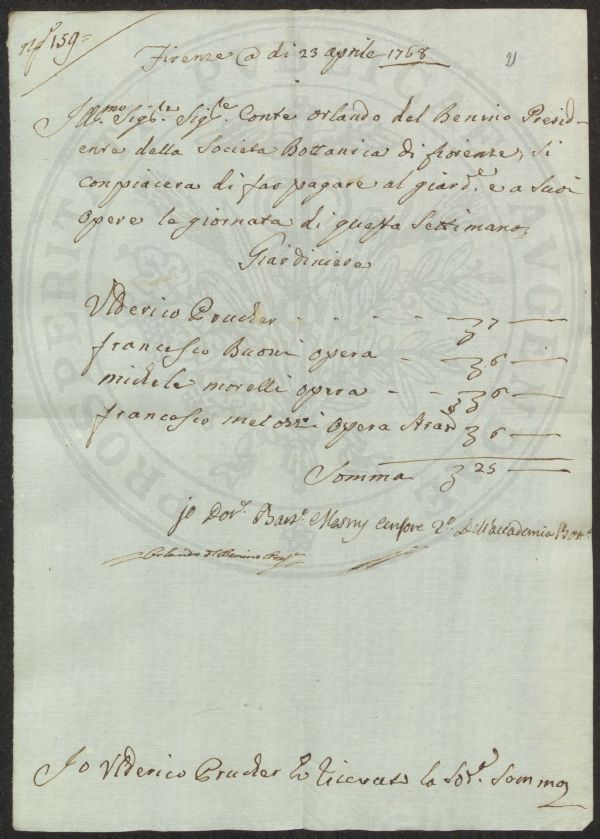 N.° 159=
Firenze @ di 23 aprile 1768
21
Ill.mo Sig.re Sig.re Conte Orlando del Benino Presid-
ente della Societa Bottanica di fiorenze, si
conpiacera di far pagare al giard.e e a suoi
Opere la giornata di questa Settimana,
Giardiniere
Vlderico Prucker - - - - - 7
francesco Buoni opera - - 6
michele morelli opera - - 6
francesco melozzi opera 6
Somma 25
jo Dor. Bar.o Mesny Censore 2.o Dell'accademia Bot.a
Orlando del Benino Pres.e
Jo Vlderico Prucker ho ricevuto la Sod.a Somma
PROSPERITATI PUBLICAE AUGENDAE